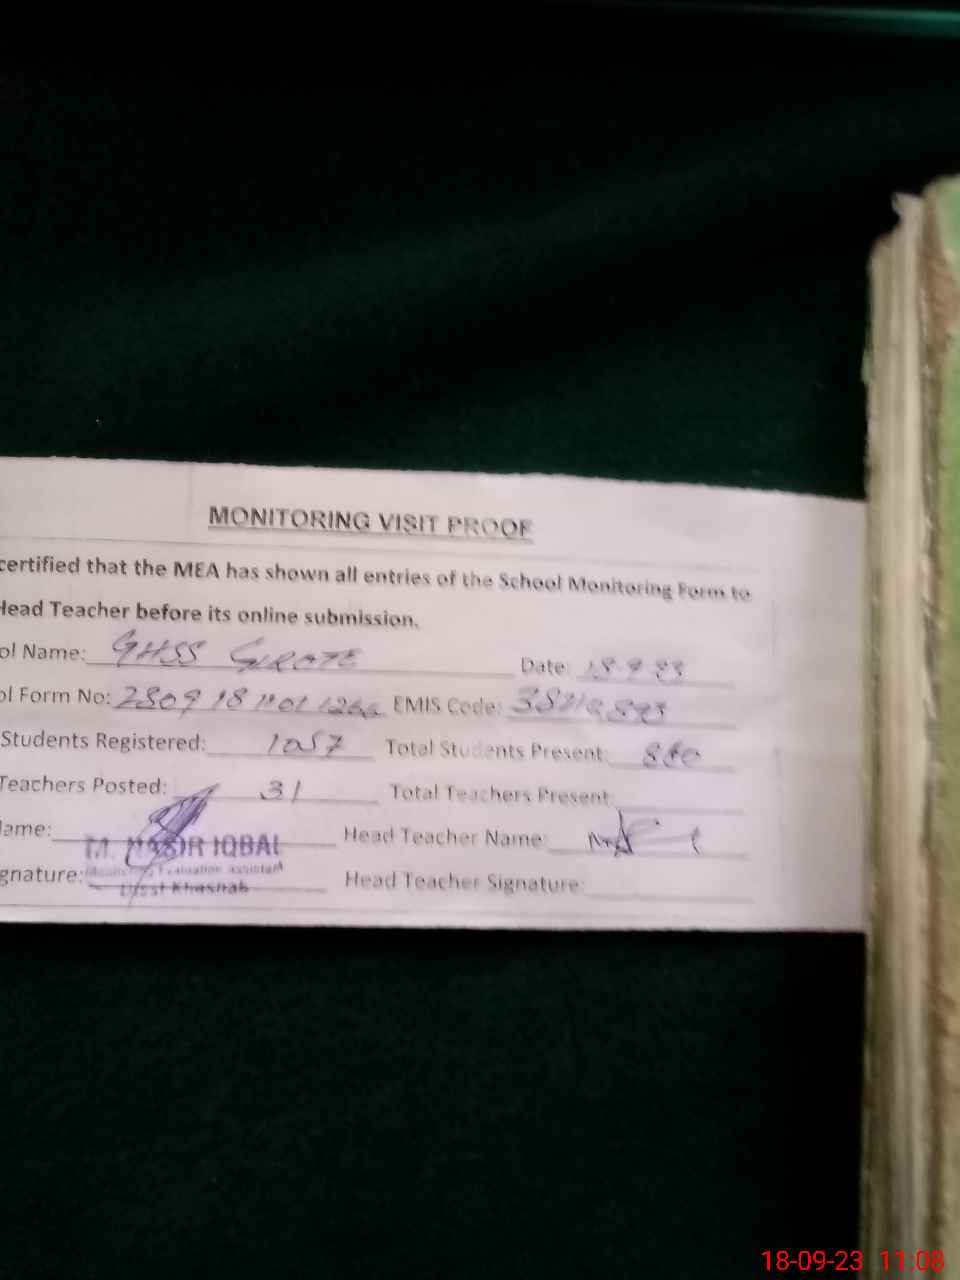 MONITORING VISIT PROOF
certified that the MEA has shown all entries of the School Monitoring Form to
Head Teacher before its online submission.
ol Name: GHSS GIROTE Date: 18-9-23
ol Form No: EMIS Code:
Students Registered: 1057 Total Students Present: 860
Teachers Posted: 31 Total Teachers Present:
ame: M. NASIR IQBAL Head Teacher Name:
gnature: Monitoring Evaluation Assistant Head Teacher Signature:
Distt Khushab
18-09-23 11:08